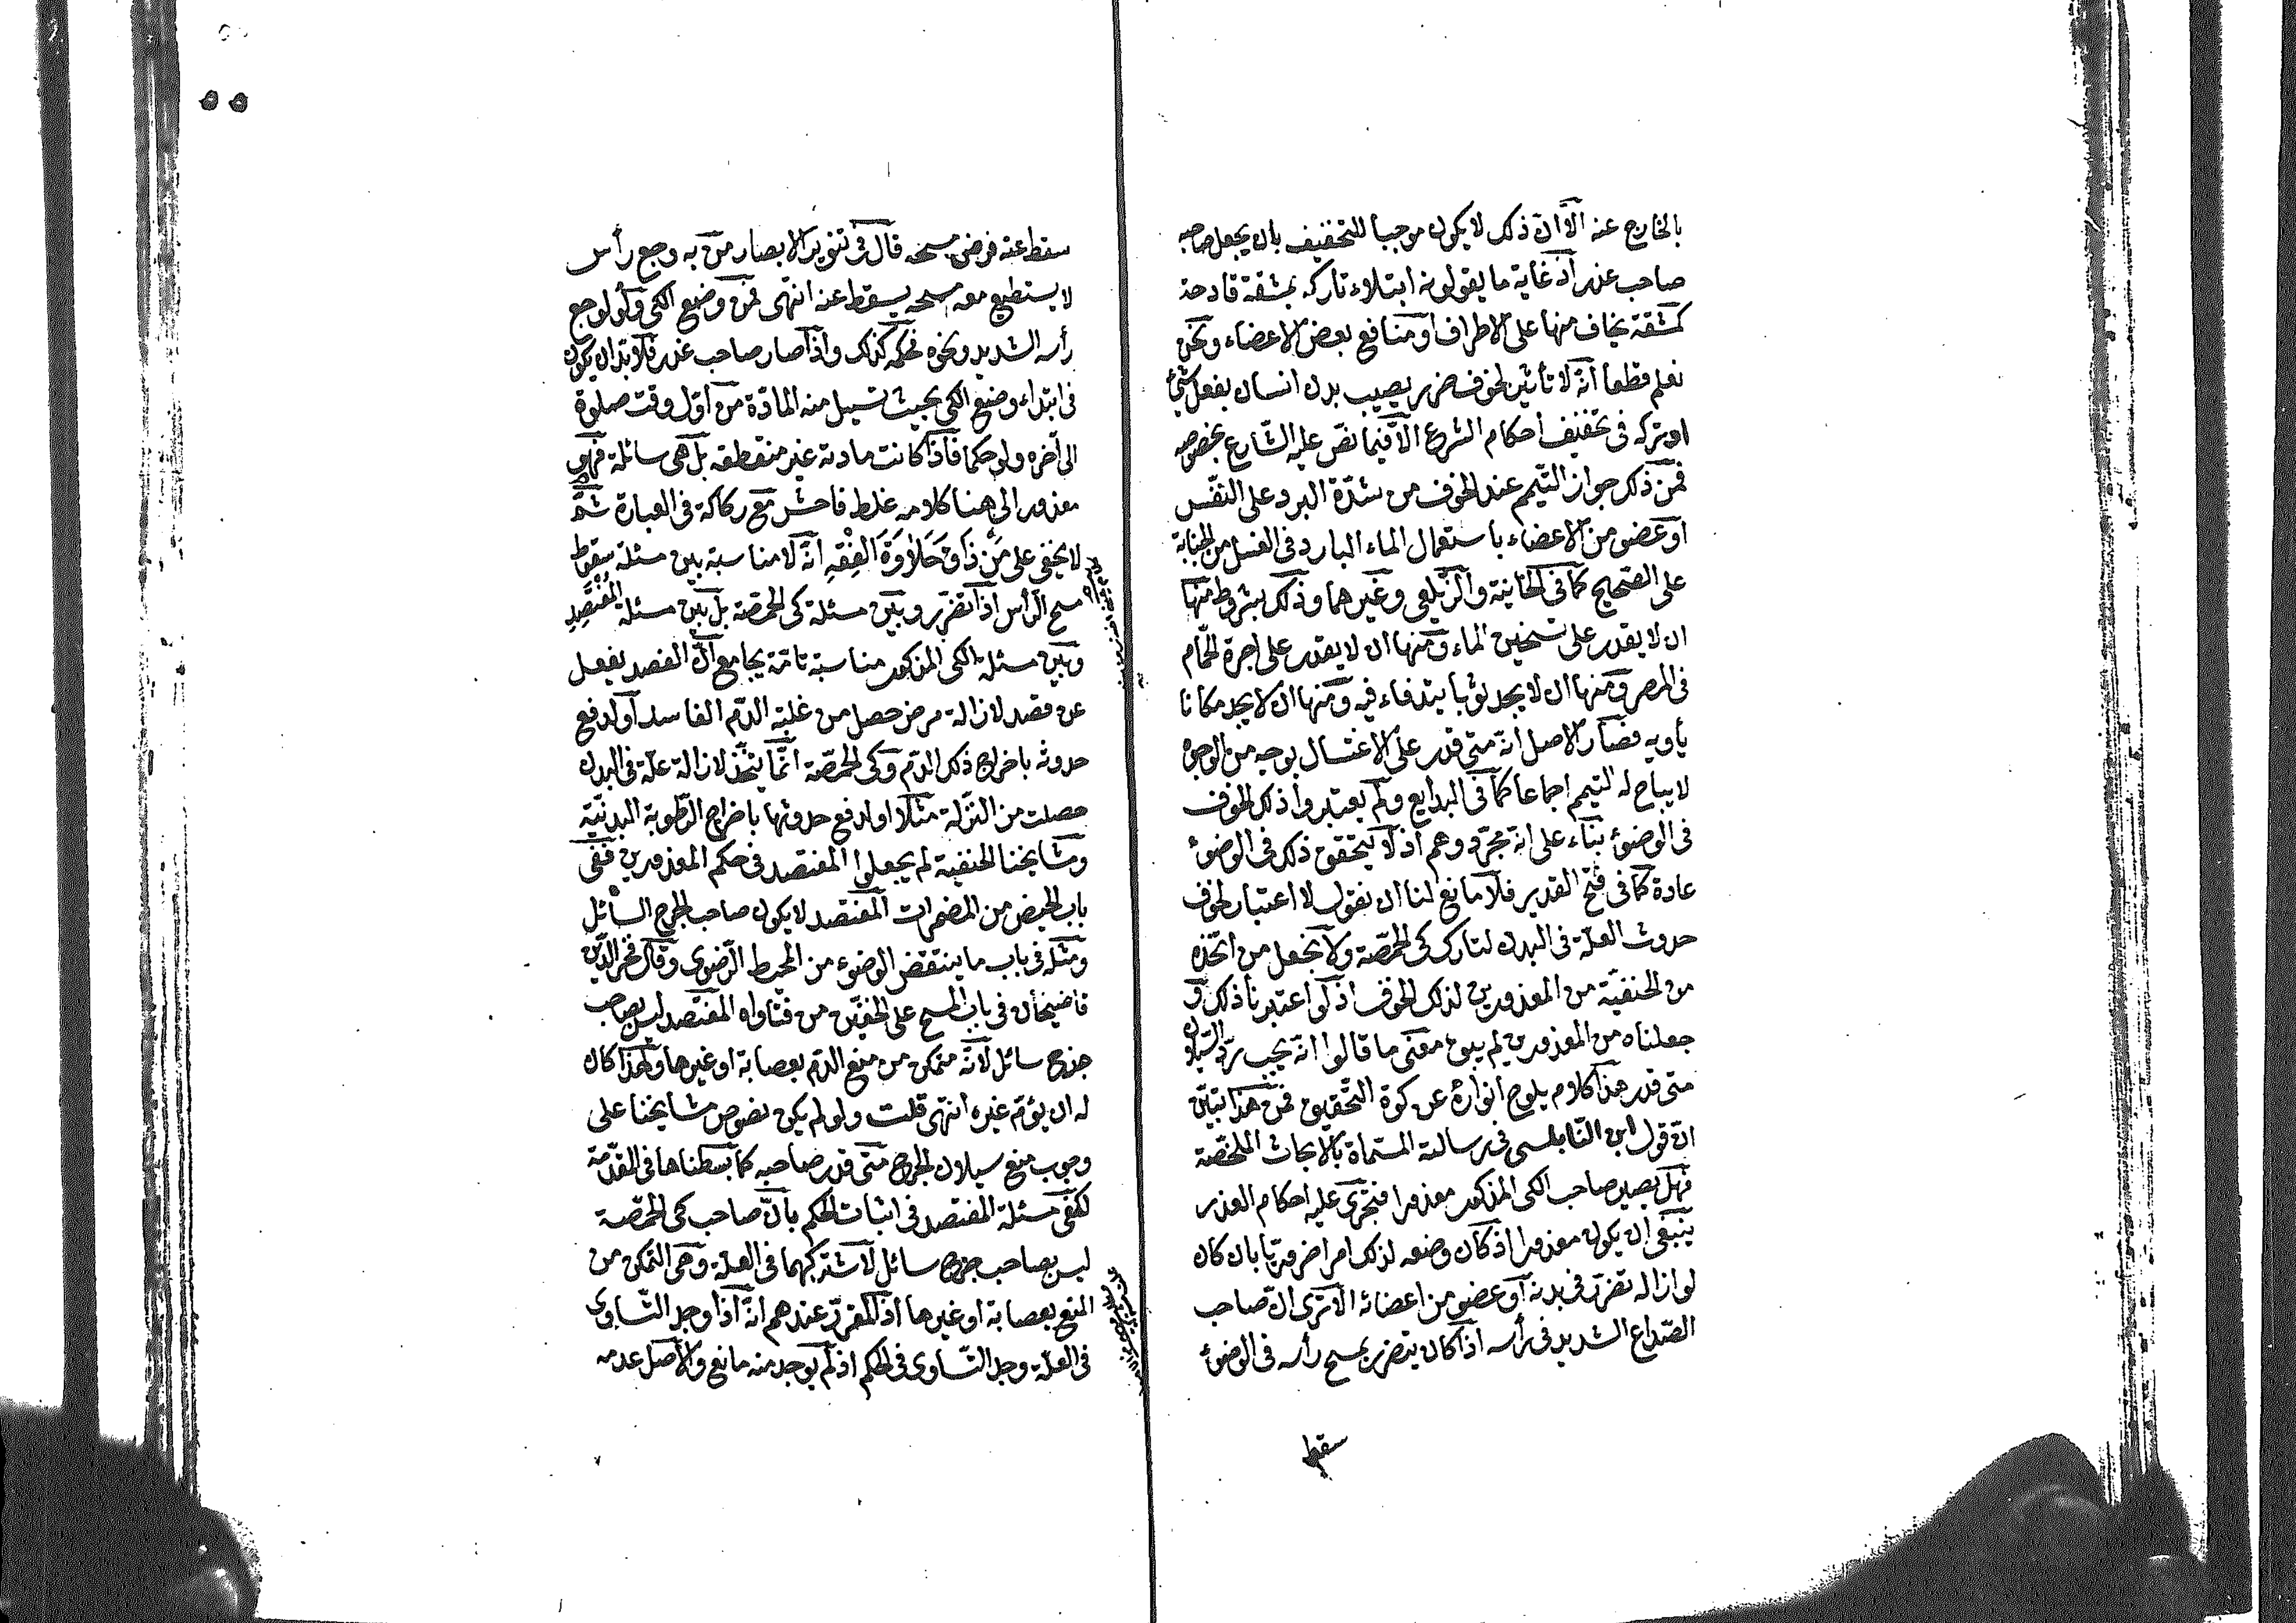 بالخارج عنه الا ان ذلك لا يكون موجبا للتخفيف بان يجعل صاحبه
صاحب عذر اذ غاية ما يقولونه ابتلاء تاركه بمشقة قادحة
كمشقة يخاف منها على الاطراف او منافع بعض الاعضاء ونحن
نعلم قطعا انه لا تأثير لخوف ضرر يصيب بدن انسان بفعل شئ
او تركه في تخفيف احكام الشرع الا فيما نص عليه الشارع بخصوصه
فمن ذلك جواز التيمم عند الخوف من شدة البرد على النفس
او عضو من الاعضاء باستعمال الماء البارد في الغسل من الجنابة
على الصحيح كما في الخانية والزيلعي وغيرهما وذلك بشروط منها
ان لا يقدر على تسخين الماء ومنها ان لا يقدر على اجرة الحمام
في المصر ومنها ان لا يجد ثوبا يتدفاء فيه ومنها ان لا يجد مكانا
يأويه فصار الاصل انه متى قدر على الاغتسال بوجه من الوجوه
لا يباح له التيمم اجماعا كما في البدايع ولم يعتبروا ذلك الخوف
في الوضوء بناء على انه مجرد وهم اذ لا يتحقق ذلك في الوضوء
عادة كما في فتح القدير فلا مانع لنا ان نقول لا اعتبار لخوف
حدوث العلة في البدن لتارك كي الحمصة ولا نجعل من اتخذه
من الحنفية من المعذورين لذلك الخوف اذ لو اعتبرنا ذلك و
جعلناه من المعذورين لم يبق معنى ما قالوا انه يجب رد السيلان
متى قدر هذا كلام يلوح انواره عن كوة التحقيق فمن هذا تبين
ان قول ابن النابلسي في رسالته المسماة بالابحاث الملخصة
فهل يصير صاحب الكي المذكور معذورا فتجري عليه احكام العذر
ينبغي ان يكون معذورا اذ كان وضعه لذلك امرا ضروريا بان كان
لو ازاله تضرر في بدنه او عضو من اعضائه الا ترى ان صاحب
الصداع الشديد في رأسه اذا كان يتضرر بمسح رأسه في الوضوء
سقط
سقط عنه فرض مسحه قال في تنوير الابصار من به وجع رأس
لا يستطيع معه مسحه يسقط عنه انتهى فمن وضع الكي ولو لوجع
رأسه الشديد ونحوه فحكمه كذلك واذا صار صاحب عذر فلا بد ان يكون
في ابتداء وضع الكي بحيث تسيل منه المادة من اول وقت صلوة
الى آخره ولو حكما فاذا كانت مادته غير منقطعة بل هي سائلة فهو
معذور الى هنا كلامه غلط فاحش مع ركاكة في العبارة ثم
لا يخفى على من ذاق حلاوة الفقه انه لا مناسبة بين مسئلة سقوط
مسح الرأس اذا تضرر وبين مسئلة كي الحمصة بل بين مسئلة المفتصد
وبين مسئلة الكي المذكور مناسبة تامة بجامع ان الفصد يفعل
عن قصد لازالة مرض حصل من غلبة الدم الفاسد او لدفع
حدوثه باخراج ذلك الدم وكي الحمصة انما يتخذ لازالة علة في البدن
حصلت من النزلة مثلا او لدفع حدوثها باخراج الرطوبة البدنية
ومشايخنا الحنفية لم يجعلوا المفتصد في حكم المعذورين ففي
باب الحيض من المضمرات المفتصد لا يكون صاحب الجرح السائل
ومثله في باب ما ينتقض الوضوء من المحيط الرضوي وقال فخر الدين
قاضيخان في باب المسح على الخفين من فتاواه المفتصد ليس بصاحب
جرح سائل لانه متمكن من منع الدم بعصابة او غيرها ولهذا كان
له ان يؤم غيره انتهى قلت ولو لم يكن نصوص مشايخنا على
وجوب منع سيلان الجرح متى قدر صاحبه كما بسطناها في المقدمة
لكفى مسئلة المفتصد في اثبات الحكم بان صاحب كي الحمصة
ليس بصاحب جرح سائل لاشتراكهما في العلة وهي التمكن من
المنع بعصابة او غيرها اذ المقرر عندهم انه اذا وجد التساوى
في العلة وجد التساوى في الحكم اذ لم يوجد منه مانع والاصل عدمه